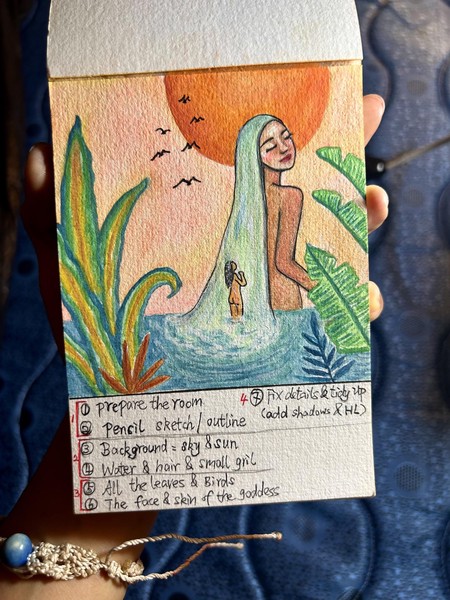 1 ① prepare the room
② pencil sketch / outline
2 ③ Background = sky & sun
④ Water & hair & small gril
3 ⑤ All the leaves & Birds
⑥ The face & skin of the goddess
4 ⑦ Fix details & tidy up
(add shadows & HL)